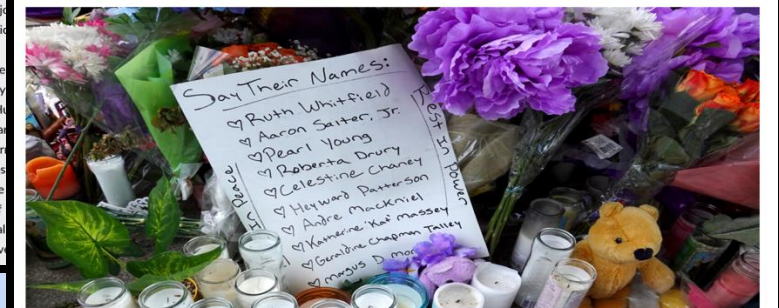 Say Their Names:
♡Ruth Whitfield
♡Aaron Salter, Jr.
♡Pearl Young
♡Roberta Drury
♡Celestine Chaney
♡Heyward Patterson
♡Andre Mackniel
♡Katherine 'Kat' Massey
♡Geraldine Chapman Talley
♡Margus D
In Peace
Rest In Power